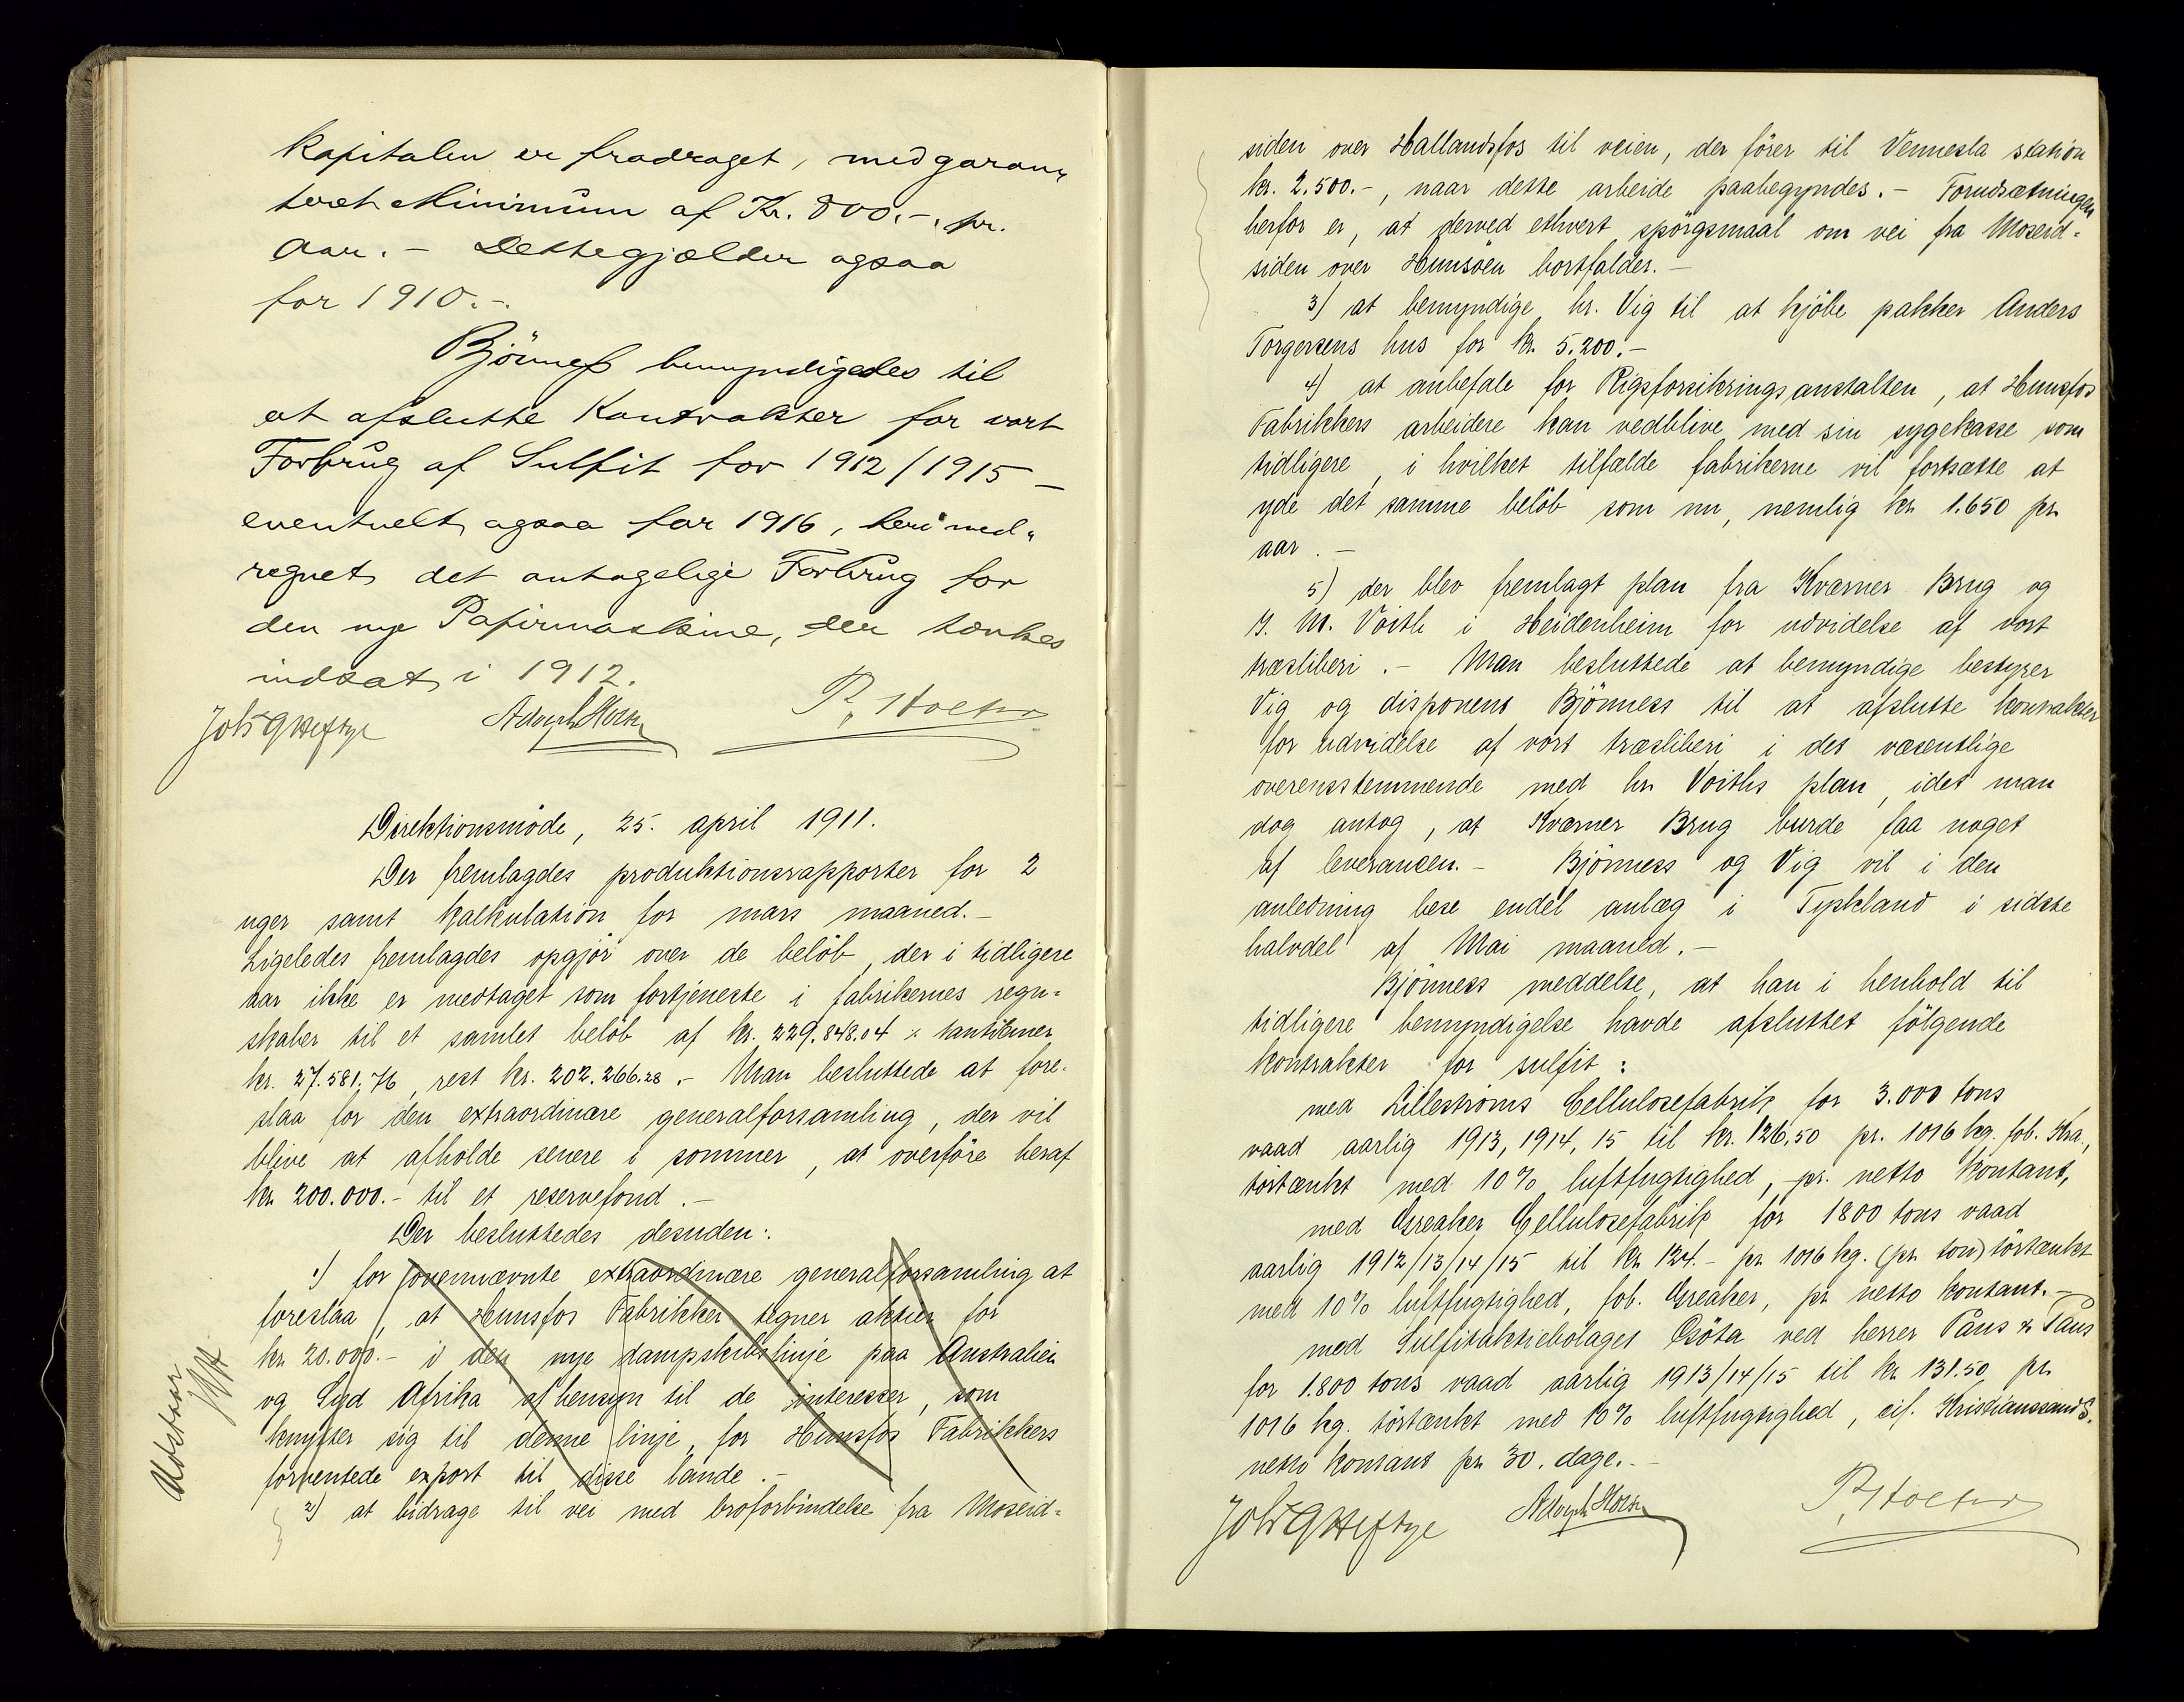 Kapitalen er fradraget, med garan„
teret Minimum af Kr. 800.-, pr.
Aar. - Dette gjælder ogsaa
for 1910.-
Bjönness bemyndigedes til
at afslutte Kontrakter for vort
Forbrug af Sulfit for 1912/1915 -
eventuelt ogsaa for 1916, heri med„
regnet det antagelige Forbrug for
den nye Papirmaskine, der tænkes
indsat i 1912.
Johs G Heftye Adolph Holst P. Holter
Direktionsmöde, 25. april 1911.
Der fremlagdes produktionsrapporter for 2
uger samt kalkulation for mars maaned.-
Ligeledes fremlagdes opgjör over de belöb, der i tidligere
aar ikke er medtaget som fortjeneste i fabrikernes regn=
skaber til et samlet belöb af kr. 229.848.04 ÷ tantiemer
kr. 27.581.76, rest kr. 202.266.28.- Man besluttede at fore-
slaa for den extraordinære generalforsamling, der vil
blive at afholde senere i sommer, at overföre heraf
kr. 200.000.- til et reservefond.-
Der besluttedes desuden:
1) for ovennævnte extraordinære generalforsamling at
foreslaa, at Hunsfos Fabrikker tegner aktier for
kr. 20.000.- i den nye dampskibslinje paa Australien
og Syd Afrika af hensyn til de interesser, som
knytter sig til denne linje, for Hunsfos Fabrikkers
forventede export til disse lande.-
Udestaar
JGH
2) at bidrage til vei med broforbindelse fra Moseid=
siden over Hallandsfos til veien, der förer til Vennesla station
kr. 2.500.-, naar dette arbeide paabegyndes.- Forudsætningen
herfor er, at derved ethvert spörgsmaal om vei fra Moseid=
siden over Hunsöen bortfalder.-
3) at bemyndige hr. Vig til at kjöbe pakker Anders
Torgersens hus for kr. 5.200.-
4) at anbefale for Rigsforsikringsanstalten, at Hunsfos
Fabrikkers arbeidere kan vedblive med sin sygekasse som
tidligere, i hvilket tilfælde fabrikerne vil fortsætte at
yde det samme belöb som nu, nemlig kr. 1.650 pr.
aar.-
5) der blev fremlagt plan fra Kværner Brug og
J. M. Voith i Heidenheim for udvidelse af vort
træsliberi.- Man besluttede at bemyndige bestyrer
Vig og disponent Bjönness til at afslutte kontrakter
for udvidelse af vort træsliberi i det væsentlige
overensstemmende med hr. Voiths plan, idet man
dog antog, at Kværner Brug burde faa noget
af leverancen.- Bjönness og Vig vil i den
anledning bese endel anlæg i Tyskland i sidste
halvdel af Mai maaned.-
Bjönness meddelte, at han i henhold til
tidligere bemyndigelse havde afsluttet fölgende
kontrakter for sulfit:
med Lilleströms Cellulosefabrik for 3.000 tons
vaad aarlig 1913, 1914, 15 til kr. 126,50 pr. 1016 kg. fob. Kra.,
törtænkt med 10% luftfugtighed, pr. netto kontant,
med Greaker Cellulosefabrik for 1800 tons vaad
aarlig 1912/13/14/15 til kr. 124.- pr. 1016 kg. (pr. ton) törtænkt
med 10% luftfugtighed, fob. Greaker, pr. netto kontant.-
med Sulfitaktiebolaget Ösöta ved herrer Paus & Paus
for 1.800 tons vaad aarlig 1913/14/15 til kr. 131.50, pr.
1016 kg. törtænkt med 10% luftfugtighed, cif. Kristianssand S.
netto kontant pr. 30. dage.-
Johs G Heftye Adolph Holst P. Holter